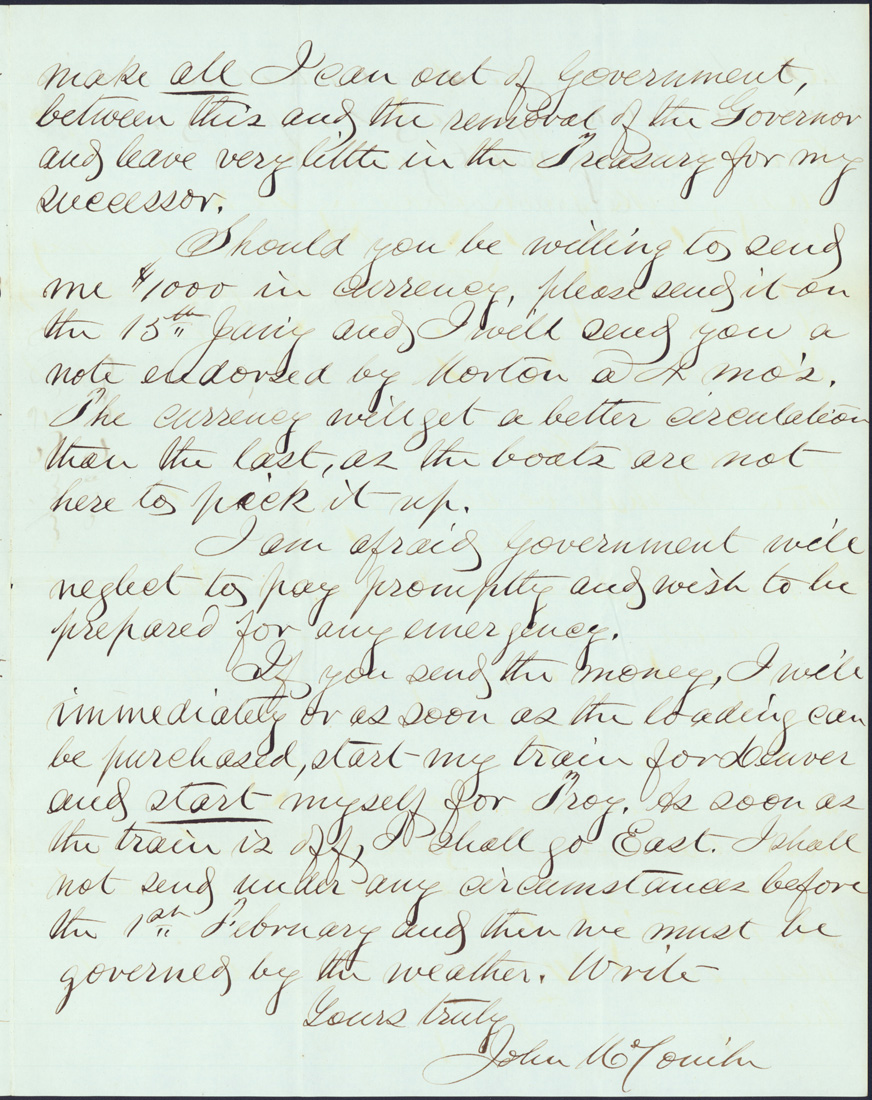 make all I can out of Government,
between this and the removal of the Governor
and leave very little in the Treasury for my
successor.
Should you be willing to send
me $1000 in currency, please send it on
the 15th Jan'y and I will send you a
note endorsed by Morton @ 4 mo's.
The currency will get a better circulation
than the last, as the boats are not
here to pick it up.
I am afraid Government will
neglect to pay promptly and wish to be
prepared for any emergency.
If you send the money, I will
immediately or as soon as the loading can
be purchased, start my train for Denver
and start myself for Troy. As soon as
the train is off, I shall go East. I shall
not send under any circumstances before
the 1st February and then we must be
governed by the weather. Write
Yours truly
John McConihe